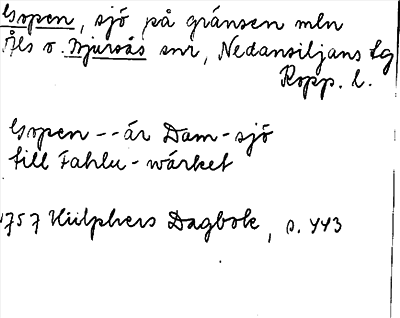 Gopen, sjö på gränsen mln
Åls o. Bjursås snr, Nedansiljans fg
Kopp. l.
Gopen -- är Dam-sjö
till Fahlu-wärket
1757 Hülphers Dagbok, s. 443